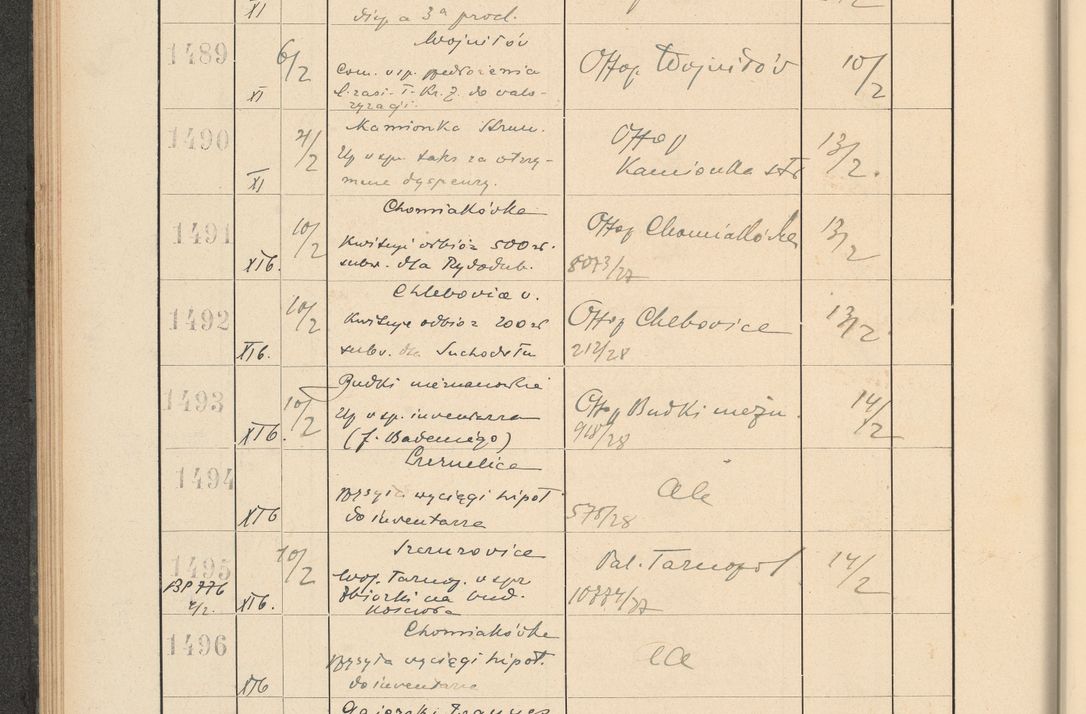 XI
a 3ª prod.
1489
XI
6/2
Wojniłów
Com. w sp.
do walo-
ryzacji.
Offop Wojniłów
10/2
1490
XI
4/2
Kamionka Strum.
Up w spr. taks za otrzy-
mane dyspensy.
Offop
Kamionka str
13/2.
1491
XIb.
10/2
Chomiakówka
Kwituje odbiór 500 zł.
subw. dla
Offop Chomiakówka
8073/27
13/2
1492
XIb.
10/2
Chlebovice v.
Kwituje odbiór 200 zł
subv. dla Suchodołu
Offop Chlebovice
212/28
13/2
1493
XIb.
10/2
Budki nieznanowskie
Up w sp. inwentarza
(f. Badeniego)
Offop Budki niezn.
918/28
14/2
1494
XIb
Czernelica
przysyła wyciągi hipot
do inventarza
ala
578/28
1495
BP 776
XIb.
10/2
Szczurovice
Woj. Tarnop. w spr
zbiórki na bud.
kościoła
Pal. Tarnopol
10884/27
14/2
1496
XIb
Chomiakówka
Przysyła wyciągi hipot.
do inventarza
ala